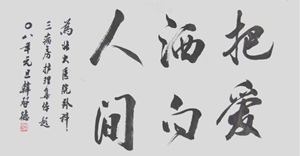 把爱
洒向
人间
为北大医院外科
三病房护理集体题
〇八年元旦韩启德